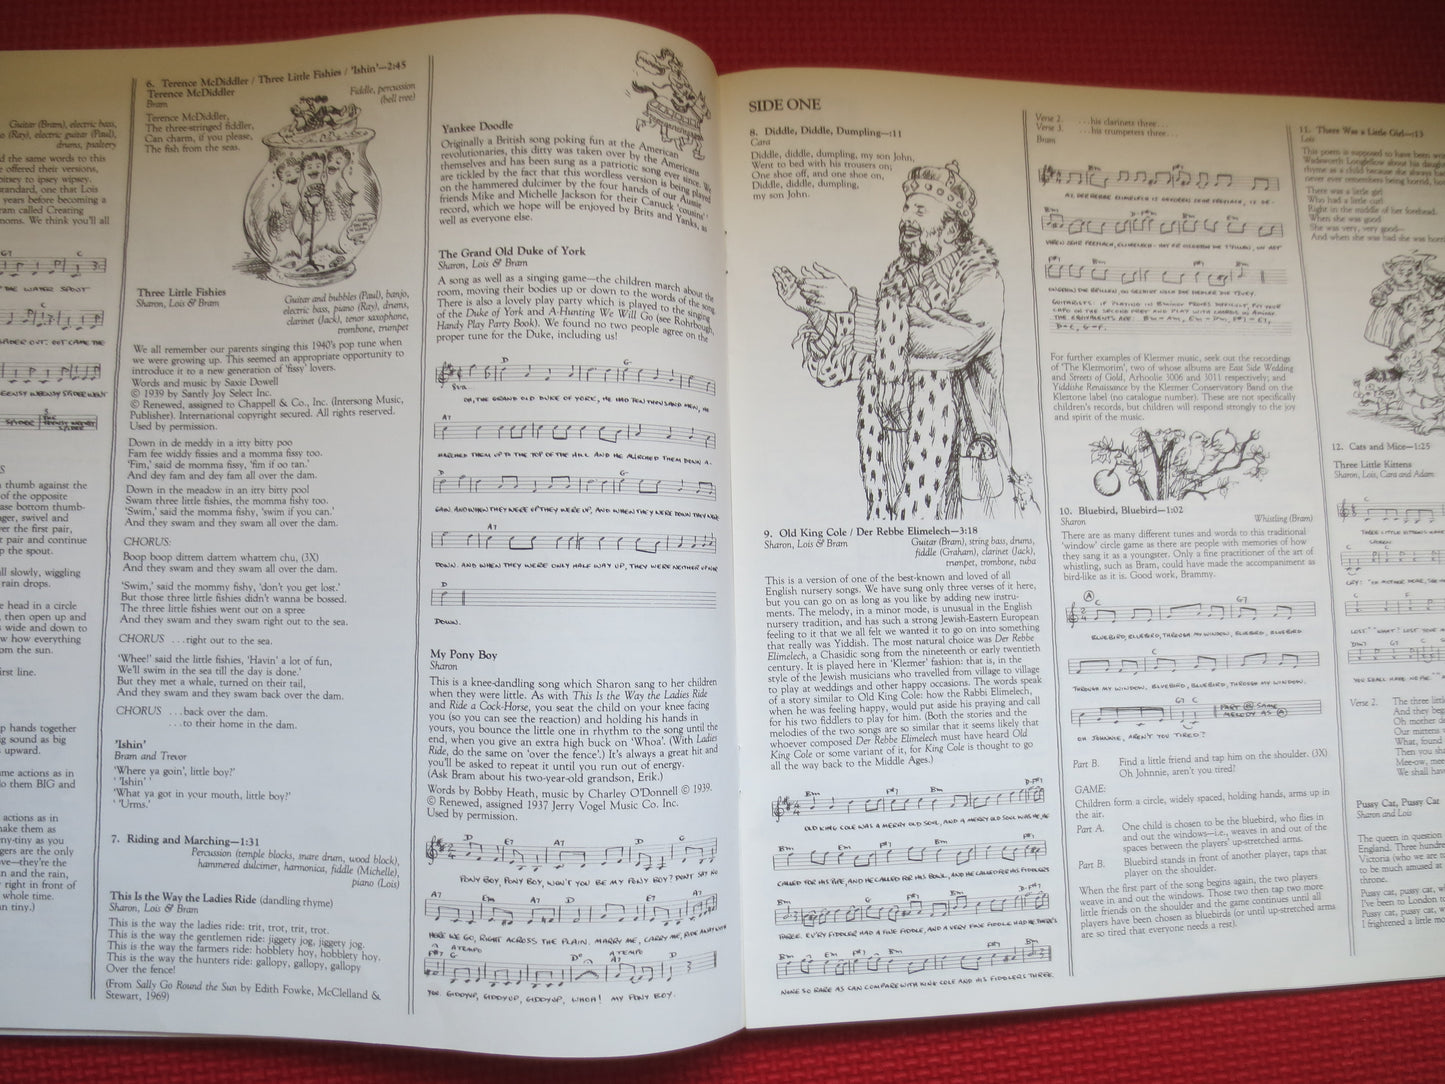 Guitar (Bram), electric bass,
(Ray), electric guitar (Paul),
drums, psaltery
d the same words to this
e offered their versions,
pitsey to ipsey wipsey.
randard, one that Lois
years before becoming a
ram called Creating
noms. We think you'll all
G7 C
THE WATER SPOUT
C
SPIDER OUT. OUT CAME THE
EENSY WEENSY SPIDER WENT
thumb against the
of the opposite
ase bottom thumb-
nger, swivel and
er the first pair,
r pair and continue
p the spout.
all slowly, wiggling
rain drops.
e head in a circle
, then open up and
s wide and down to
ow how everything
om the sun.
irst line.
p hands together
ig sound as big
s upward.
me actions as in
do them BIG and
actions as in
make them as
ny-tiny as you
gers are the only
ve—they're the
n and the rain,
r right in front of
whole time.
an tiny.)
6. Terence McDiddler / Three Little Fishies / 'Ishin'—2:45
Terence McDiddler
Bram
Fiddle, percussion
(bell tree)
Terence McDiddler,
The three-stringed fiddler,
Can charm, if you please,
The fish from the seas.
Three Little Fishies
Sharon, Lois & Bram
Guitar and bubbles (Paul), banjo,
electric bass, piano (Ray), drums,
clarinet (Jack), tenor saxophone,
trombone, trumpet
We all remember our parents singing this 1940's pop tune when
we were growing up. This seemed an appropriate opportunity to
introduce it to a new generation of 'fissy' lovers.
Words and music by Saxie Dowell
© 1939 by Santly Joy Select Inc.
© Renewed, assigned to Chappell & Co., Inc. (Intersong Music,
Publisher). International copyright secured. All rights reserved.
Used by permission.
Down in de meddy in a itty bitty poo
Fam fee widdy fissies and a momma fissy too.
'Fim,' said de momma fissy, 'fim if oo tan.'
And dey fam and dey fam all over the dam.
Down in the meadow in an itty bitty pool
Swam three little fishies, the momma fishy too.
'Swim,' said the momma fishy, 'swim if you can.'
And they swam and they swam all over the dam.
CHORUS:
Boop boop dittem dattem whattem chu, (3X)
And they swam and they swam all over the dam.
'Swim,' said the mommy fishy, 'don't you get lost.'
But those three little fishies didn't wanna be bossed.
The three little fishies went out on a spree
And they swam and they swam right out to the sea.
CHORUS ...right out to the sea.
'Whee!' said the little fishies, 'Havin' a lot of fun,
We'll swim in the sea till the day is done.'
But they met a whale, turned on their tail,
And they swam and they swam back over the dam.
CHORUS ...back over the dam.
...to their home in the dam.
'Ishin'
Bram and Trevor
'Where ya goin', little boy?'
' 'Ishin' '
'What ya got in your mouth, little boy?'
' 'Urms.'
7. Riding and Marching—1:31
Percussion (temple blocks, snare drum, wood block),
hammered dulcimer, harmonica, fiddle (Michelle),
piano (Lois)
This Is the Way the Ladies Ride (dandling rhyme)
Sharon, Lois & Bram
This is the way the ladies ride: trit, trot, trit, trot.
This is the way the gentlemen ride: jiggety jog, jiggety jog.
This is the way the farmers ride: hobblety hoy, hobblety hoy.
This is the way the hunters ride: gallopy, gallopy, gallopy
Over the fence!
(From Sally Go Round the Sun by Edith Fowke, McClelland &
Stewart, 1969)
Yankee Doodle
Originally a British song poking fun at the American
revolutionaries, this ditty was taken over by the Americans
themselves and has been sung as a patriotic song ever since. We
are tickled by the fact that this wordless version is being played
on the hammered dulcimer by the four hands of our Aussie
friends Mike and Michelle Jackson for their Canuck 'cousins'
record, which we hope will be enjoyed by Brits and Yanks, as
well as everyone else.
The Grand Old Duke of York
Sharon, Lois & Bram
A song as well as a singing game—the children march about the
room, moving their bodies up or down to the words of the song.
There is also a lovely play party which is played to the singing
of the Duke of York and A-Hunting We Will Go (see Rohrbough,
Handy Play Party Book). We found no two people agree on the
proper tune for the Duke, including us!
D G
8va
OH, THE GRAND OLD DUKE OF YORK, HE HAD TEN THOUSAND MEN, HE
A7
MARCHED THEM UP TO THE TOP OF THE HILL AND HE MARCHED THEM DOWN A-
D G
GAIN. AND WHEN THEY WERE UP THEY WERE UP, AND WHEN THEY WERE DOWN THEY WERE
A7
DOWN. AND WHEN THEY WERE ONLY HALF WAY UP, THEY WERE NEITHER UP NOR
D
DOWN.
My Pony Boy
Sharon
This is a knee-dandling song which Sharon sang to her children
when they were little. As with This Is the Way the Ladies Ride
and Ride a Cock-Horse, you seat the child on your knee facing
you (so you can see the reaction) and holding his hands in
yours, you bounce the little one in rhythm to the song until the
end, when you give an extra high buck on 'Whoa'. (With Ladies
Ride, do the same on 'over the fence'.) It's always a great hit and
you'll be asked to repeat it until you run out of energy.
(Ask Bram about his two-year-old grandson, Erik.)
Words by Bobby Heath, music by Charley O'Donnell © 1939.
© Renewed, assigned 1937 Jerry Vogel Music Co. Inc.
Used by permission.
D E7 A7 D G
PONY BOY, PONY BOY, WON'T YOU BE MY PONY BOY? DON'T SAY NO
A7 Em A7 D A7
HERE WE GO, RIGHT ACROSS THE PLAIN. MARRY ME, CARRY ME, RIDE AWAY WITH
A TEMPO
A TEMPO
F#7 G D° A7 D
YOU. GIDDYUP, GIDDYUP, GIDDYUP, WHOA! MY PONY BOY.
SIDE ONE
8. Diddle, Diddle, Dumpling—:11
Cara
Diddle, diddle, dumpling, my son John,
Went to bed with his trousers on;
One shoe off, and one shoe on,
Diddle, diddle, dumpling,
my son John.
9. Old King Cole / Der Rebbe Elimelech—3:18
Sharon, Lois & Bram
Guitar (Bram), string bass, drums,
fiddle (Graham), clarinet (Jack),
trumpet, trombone, tuba
This is a version of one of the best-known and loved of all
English nursery songs. We have sung only three verses of it here,
but you can go on as long as you like by adding new instru-
ments. The melody, in a minor mode, is unusual in the English
nursery tradition, and has such a strong Jewish-Eastern European
feeling to it that we all felt we wanted it to go on into something
that really was Yiddish. The most natural choice was Der Rebbe
Elimelech, a Chasidic song from the nineteenth or early twentieth
century. It is played here in 'Klezmer' fashion: that is, in the
style of the Jewish musicians who travelled from village to village
to play at weddings and other happy occasions. The words speak
of a story similar to Old King Cole: how the Rabbi Elimelech,
when he was feeling happy, would put aside his praying and call
for his two fiddlers to play for him. (Both the stories and the
melodies of the two songs are so similar that it seems likely that
whoever composed Der Rebbe Elimelech must have heard Old
King Cole or some variant of it, for King Cole is thought to go
all the way back to the Middle Ages.)
Bm F#7 Bm D F#7
OLD KING COLE WAS A MERRY OLD SOUL, AND A MERRY OLD SOUL WAS HE, HE
Bm F#7 Bm
CALLED FOR HIS PIPE, AND HE CALLED FOR HIS BOWL, AND HE CALLED FOR HIS FIDDLERS
Bm G F#7 Bm D F#7
THREE. EV'RY FIDDLER HAD A FINE FIDDLE, AND A VERY FINE FIDDLE HAD HE. THERE'S
Bm F#7 Bm
NONE SO RARE AS CAN COMPARE WITH KING COLE AND HIS FIDDLERS THREE.
Verse 2. ...his clarinets three...
Verse 3. ...his trumpeters three...
Bram
Bm F#7
AZ DER REBBE ELIMELECH IZ GEVOREN ZEER FREYLACH, IZ ZE-
Bm D F#7 Bm F#7
VOREN ZEER FREYLACH, ELIMELECH HOT ER OISGETON DI TFILLEN, UN HOT
Bm F#7 Bm
ONGETON DI BRILLEN, UN GESHIKT NOCH DIE FIEDLER DIE TSVEY.
GUITARISTS: IF PLAYING IN B MINOR PROVES DIFFICULT, PUT YOUR
CAPO ON THE SECOND FRET AND PLAY WITH CHORDS IN A MINOR.
THE EQUIVALENTS ARE: Bm = Am, Em = Dm, F#7 = E7,
D = C, G = F.
For further examples of Klezmer music, seek out the recordings
of 'The Klezmorim', two of whose albums are East Side Wedding
and Streets of Gold, Arhoolie 3006 and 3011 respectively; and
Yiddishe Renaissance by the Klezmer Conservatory Band on the
Kleztone label (no catalogue number). These are not specifically
children's records, but children will respond strongly to the joy
and spirit of the music.
10. Bluebird, Bluebird—1:02
Sharon
Whistling (Bram)
There are as many different tunes and words to this traditional
'window' circle game as there are people with memories of how
they sang it as a youngster. Only a fine practitioner of the art of
whistling, such as Bram, could have made the accompaniment as
bird-like as it is. Good work, Brammy.
A
C G7
BLUEBIRD, BLUEBIRD, THROUGH MY WINDOW, BLUEBIRD, BLUEBIRD
C
THROUGH MY WINDOW. BLUEBIRD, BLUEBIRD, THROUGH MY WINDOW.
G7 C
PART B SAME MELODY AS A
OH JOHNNIE, AREN'T YOU TIRED?
Part B. Find a little friend and tap him on the shoulder. (3X)
Oh Johnnie, aren't you tired?
GAME:
Children form a circle, widely spaced, holding hands, arms up in
the air.
Part A. One child is chosen to be the bluebird, who flies in
and out the windows—i.e., weaves in and out of the
spaces between the players' up-stretched arms.
Part B. Bluebird stands in front of another player, taps that
player on the shoulder.
When the first part of the song begins again, the two players
weave in and out the windows. Those two then tap two more
little friends on the shoulder and the game continues until all
players have been chosen as bluebirds (or until up-stretched arms
are so tired that everyone needs a rest).
11. There Was a Little Girl—:13
Lois
This poem is supposed to have been
Wadsworth Longfellow about his daugh
rhyme as a child because she always ha
never ever remembers being horrid,
There was a little girl
Who had a little curl
Right in the middle of her forehead.
When she was good
She was very, very good—
And when she was bad she was hor
12. Cats and Mice—1:25
Three Little Kittens
Sharon, Lois, Cara and Adam
THREE LITTLE KITTENS
CRY: "OH MOTHER DEAR, SEE
LOST" "WHAT! LOST YOUR
YOU SHALL HAVE NO PIE."
Verse 2. The three littl
And they beg
Oh mother d
Our mittens
What, found
Then you sh
Mee-ow, mee
We shall hav
Pussy Cat, Pussy Cat
Sharon and Lois
The queen in question
England. Three hundre
Victoria (who we are to
to be much amused at
throne.
Pussy cat, pussy cat, w
I've been to London to
Pussy cat, pussy cat, w
I frightened a little mo